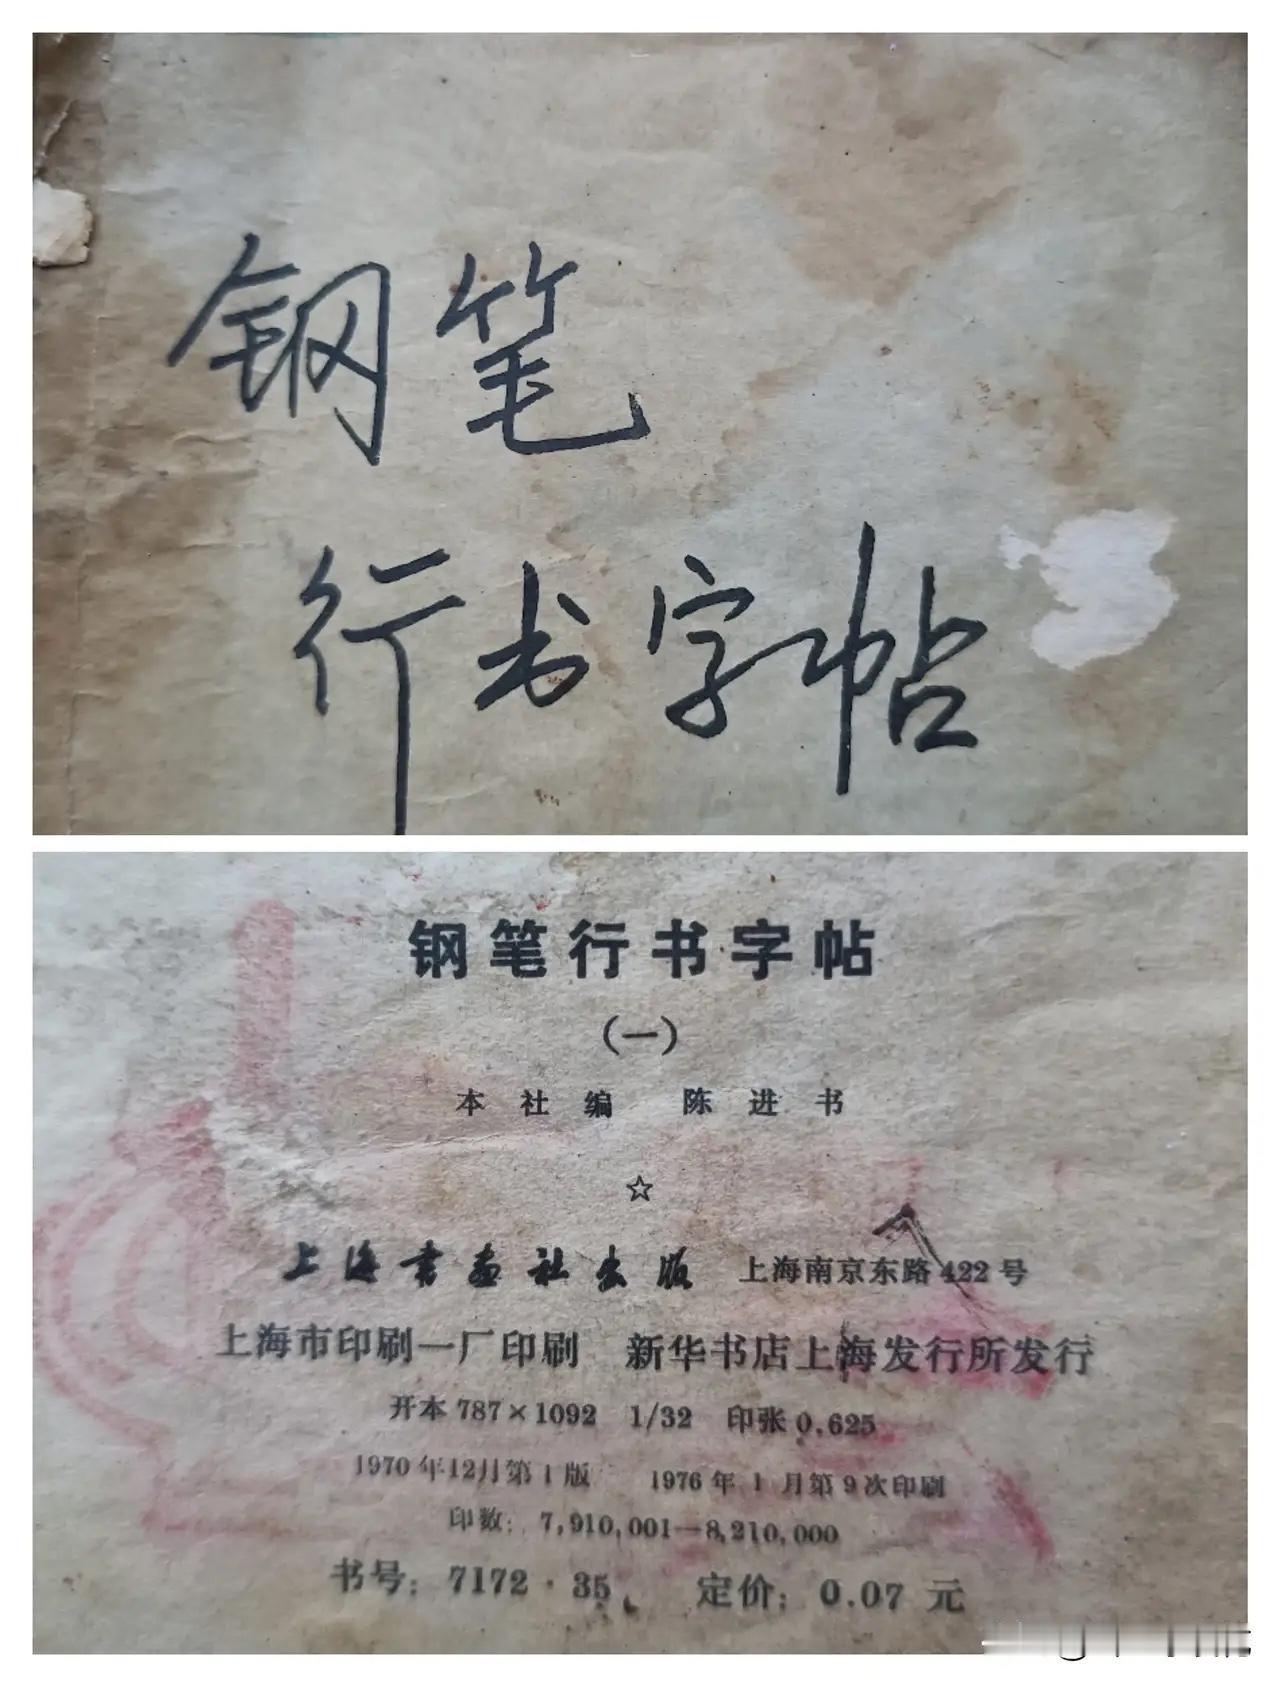 钢笔
行书字帖
钢笔行书字帖
（一）
本社编 陈进书
☆
上海书画社出版 上海南京东路422号
上海市印刷一厂印刷 新华书店上海发行所发行
开本 787×1092 1/32 印张 0.625
1970年12月第1版 1976年1月第9次印刷
印数：7,910,001—8,210,000
书号：7172·35 定价：0.07元